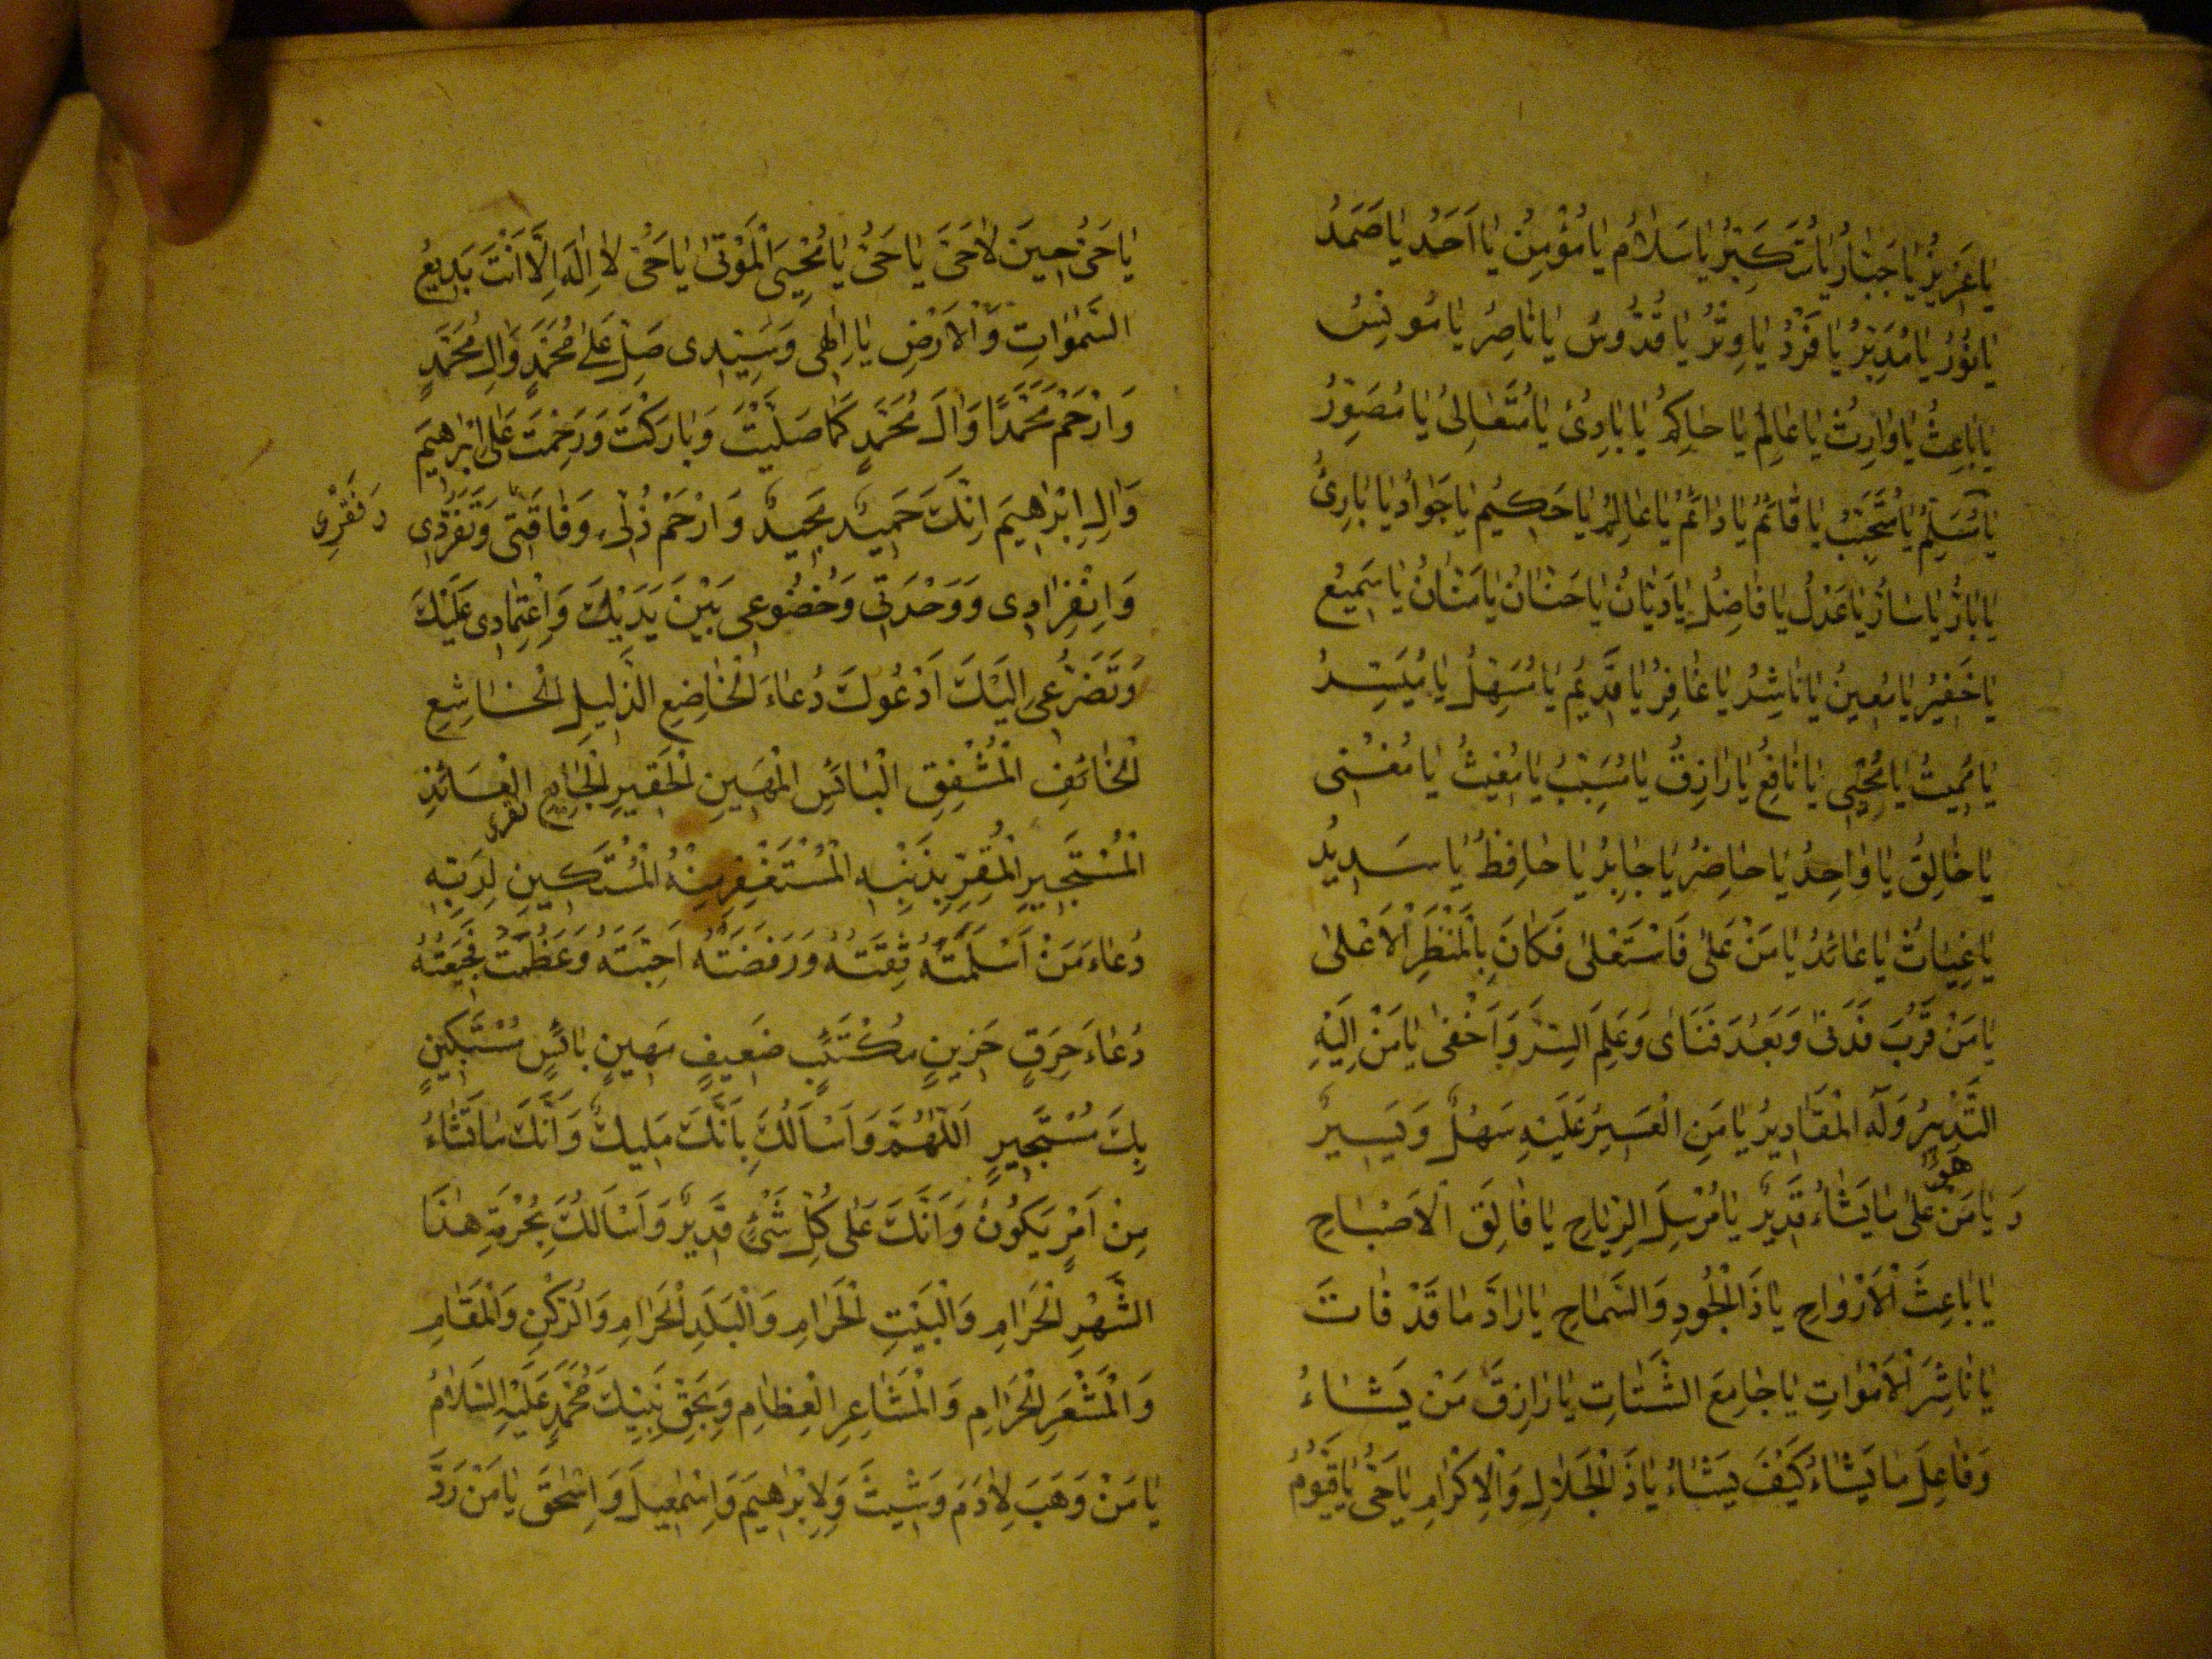 يَا عَزِيزُ يَا جَبَّارُ يَا مُتَكَبِّرُ يَا سَلَامُ يَا مُؤْمِنُ يَا اَحَدُ يَا صَمَدُ
يَا نُورُ يَا مُدَبِّرُ يَا فَرْدُ يَا وِتْرُ يَا قُدُّوسُ يَا نَاصِرُ يَا مُونِسُ
يَا بَاعِثُ يَا وَارِثُ يَا عَالِمُ يَا حَاكِمُ يَا بَادِئُ يَا مُتَعَالِىُ يَا مُصَوِّرُ
يَا مُسَلِّمُ يَا مُتَحَبِّبُ يَا قَائِمُ يَا دَائِمُ يَا عَالِمُ يَا حَكِيمُ يَا جَوَادُ يَا بَارِئُ
يَا بَارُّ يَا سَارُّ يَا عَدْلُ يَا فَاضِلُ يَا دَيَّانُ يَا حَنَّانُ يَا مَنَّانُ يَا سَمِيعُ
يَا خَفِيرُ يَا مُعِينُ يَا نَاشِدُ يَا غَافِرُ يَا قَدِيمُ يَا مُسَهِّلُ يَا مُيَسِّرُ
يَا مُمِيتُ يَا مُحْيِى يَا نَافِعُ يَا رَازِقُ يَا مُسَبِّبُ يَا مُغِيثُ يَا مُغْنِى
يَا خَالِقُ يَا وَاحِدُ يَا حَاضِرُ يَا جَابِرُ يَا حَافِظُ يَا سَدِيدُ
يَا غِيَاثُ يَا عَائِدُ يَا مَنْ عَلَىٰ فَاسْتَعْلَىٰ فَكَانَ بِالْمَنْظَرِ الْاَعْلَىٰ
يَا مَنْ قَرُبَ فَدَنَىٰ وَبَعُدَ فَنَاَىٰ وَعَلِمَ السِّرَّ وَاَخْفَىٰ يَا مَنْ اِلَيْهِ
التَّدْبِيرُ وَلَهُ الْمَقَادِيرُ يَا مَنِ الْعَسِيرُ عَلَيْهِ سَهْلٌ وَيَسِيرٌ
وَ يَا مَنْ هُوَ عَلَىٰ مَا يَشَاءُ قَدِيرٌ يَا مُرْسِلَ الرِّيَاحِ يَا فَالِقَ الْاَصْبَاحِ
يَا بَاعِثَ الْاَرْوَاحِ يَا ذَا الْجُودِ وَالسَّمَاحِ يَا رَادَّ مَا قَدْ فَاتَ
يَا نَاشِرَ الْاَمْوَاتِ يَا جَامِعَ الشَّتَاتِ يَا رَازِقَ مَنْ يَشَاءُ
وَفَاعِلَ مَا يَشَاءُ كَيْفَ يَشَاءُ يَا ذَا الْجَلَالِ وَالْاِكْرَامِ يَا حَىُّ يَا قَيُّومُ
يَا حَىُّ حِينَ لَا حَىَّ يَا حَىُّ يَا مُحْيِىَ الْمَوْتَىٰ يَا حَىُّ لَا اِلَهَ اِلَّا اَنْتَ بَدِيعُ
السَّمٰوَاتِ وَالْاَرْضِ يَا اِلٰهِى وَسَيِّدِى صَلِّ عَلَىٰ مُحَمَّدٍ وَاٰلِ مُحَمَّدٍ
وَارْحَمْ مُحَمَّدًا وَاٰلَ مُحَمَّدٍ كَمَا صَلَّيْتَ وَبَارَكْتَ وَرَحِمْتَ عَلَىٰ اِبْرٰهِيمَ
وَاٰلِ اِبْرٰهِيمَ اِنَّكَ حَمِيدٌ مَجِيدٌ وَارْحَمْ ذُلِّى وَفَاقَتِى وَتَفَرُّدِى
وَفَقْرِى
وَانْفِرَادِى وَوَحْدَتِى وَخُضُوعِى بَيْنَ يَدَيْكَ وَاعْتِمَادِى عَلَيْكَ
وَتَضَرُّعِى اِلَيْكَ اَدْعُوكَ دُعَاءَ الْخَاضِعِ الذَّلِيلِ الْخَاشِعِ
الْخَائِفِ الْمُشْفِقِ الْبَائِسِ الْمَهِينِ الْحَقِيرِ الْجَائِعِ الْعَائِذِ
الْمُسْتَجِيرِ الْمُقِرِّ بِذَنْبِهِ الْمُسْتَغْفِرِ مِنْهُ الْمُسْتَكِينِ لِرَبِّهِ
دُعَاءَ مَنْ اَسْلَمَتْهُ ثِقَتُهُ وَرَفَضَتْهُ اَحِبَّتُهُ وَعَظُمَتْ فَجِيعَتُهُ
دُعَاءَ حَرِقٍ حَزِينٍ مُكْتَئِبٍ ضَعِيفٍ مَهِينٍ بَائِسٍ مُسْتَكِينٍ
بِكَ مُسْتَجِيرٍ اَللّٰهُمَّ وَاَسْاَلُكَ بِاَنَّكَ مَلِيكٌ وَاَنَّكَ مَا تَشَاءُ
مِنْ اَمْرٍ يَكُونُ وَاَنَّكَ عَلَىٰ كُلِّ شَىْءٍ قَدِيرٌ وَاَسْاَلُكَ بِحُرْمَةِ هٰذَا
الشَّهْرِ الْحَرَامِ وَالْبَيْتِ الْحَرَامِ وَالْبَلَدِ الْحَرَامِ وَالرُّكْنِ وَالْمَقَامِ
وَالْمَشْعَرِ الْحَرَامِ وَالْمَشَاعِرِ الْعِظَامِ وَبِحَقِّ نَبِيِّكَ مُحَمَّدٍ عَلَيْهِ السَّلَامُ
يَا مَنْ وَهَبَ لِاٰدَمَ وَشِيثَ وَلِاِبْرٰهِيمَ وَاِسْمٰعِيلَ وَاِسْحٰقَ يَا مَنْ رَدَّ